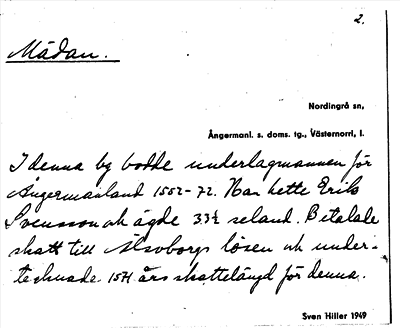 2.
Mädan.
Nordingrå sn,
Ångermanl. s. doms. tg., Västernorrl. l.
I denna by bodde underlagmannen för
Ångermanland 1552-72. Han hette Erik
Svensson och ägde 33½ seland. Betalade
skatt till Älvsborgs lösen och under-
tecknade 1571 års skattelängd för denna.
Sven Hiller 1949